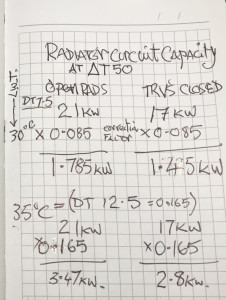 RADIATOR CIRCUIT CAPACITY
AT ΔT50
OPEN RADS TRVS CLOSED
DT 7.5 21KW 17KW
30°C X 0.085 correction FACTOR X 0.085
1.785KW 1.45KW
35°C = (DT 12.5 = 0.165)
21KW 17KW
X0.165 X0.165
3.47KW. 2.8KW.